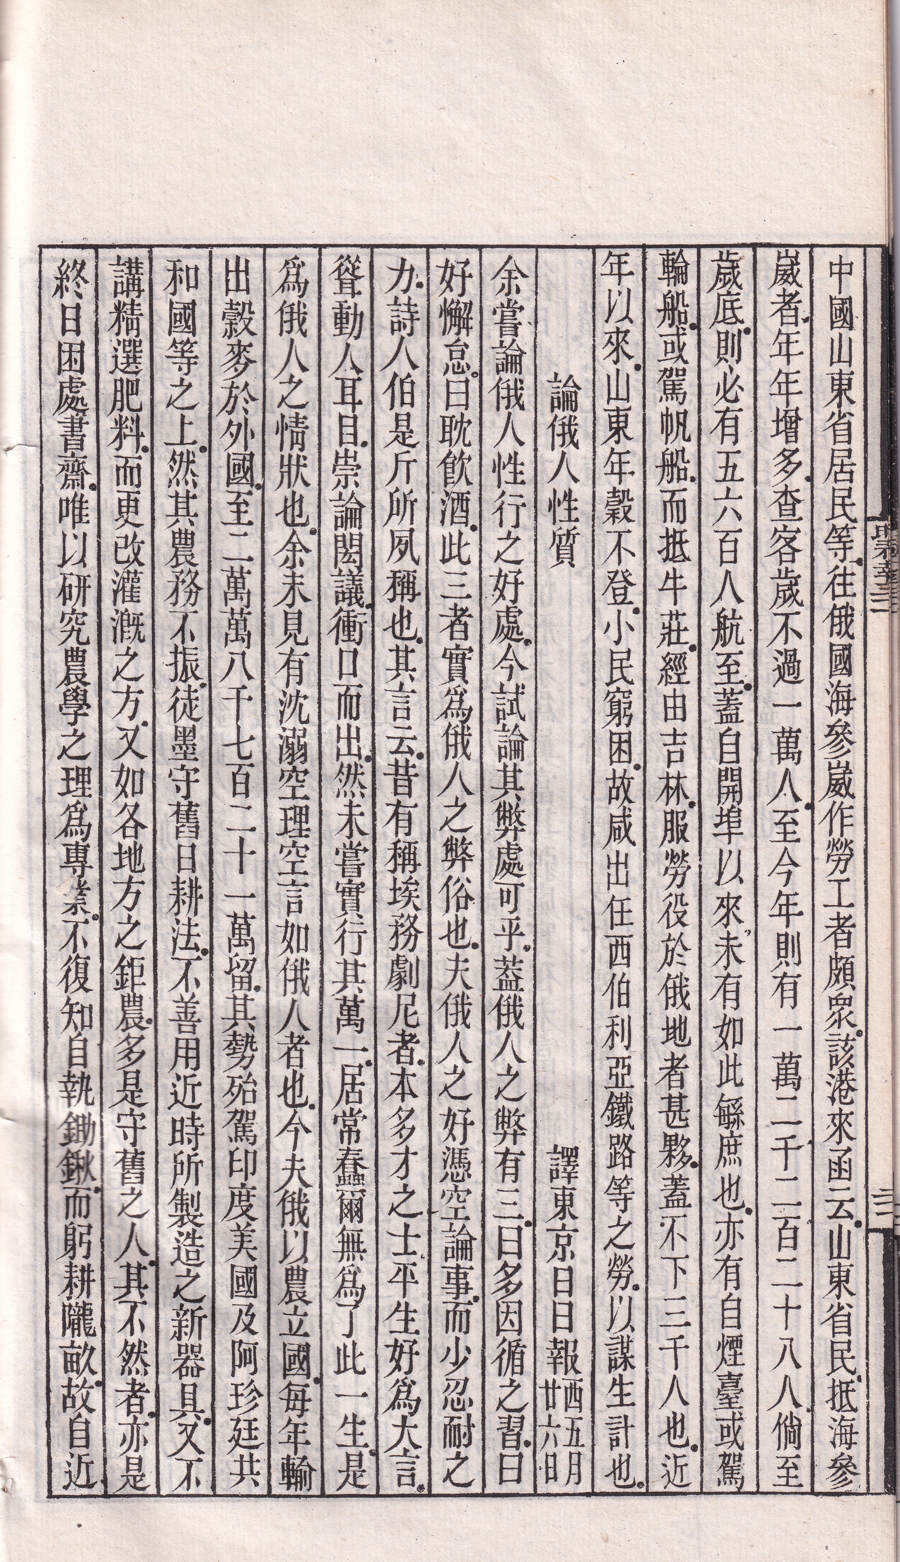 中國山東省居民等往俄國海參崴作勞工者頗衆該港來函云山東省民抵海參
崴者年年增多查客歲不過一萬人至今年則有一萬二千二百二十八人倘至
歲底則必有五六百人航至蓋自開埠以來未有如此緐庶也亦有自煙臺或駕
輪船或駕帆船而抵牛莊經由吉林服勞役於俄地者甚夥蓋不下三千人也近
年以來山東年穀不登小民窮困故咸出任西伯利亞鐵路等之勞以謀生計也
論俄人性質 譯東京日日報西五月廿六日
余嘗論俄人性行之好處今試論其弊處可乎蓋俄人之弊有三曰多因循之習曰
好懈怠曰耽飮酒此三者實爲俄人之弊俗也夫俄人之好憑空論事而少忍耐之
力詩人伯是斤所夙稱也其言云昔有稱埃務劇尼者本多才之士平生好爲大言
聳動人耳目崇論閎議衝口而出然未嘗實行其萬一居常蠢爾無爲了此一生是
爲俄人之情狀也余未見有沈溺空理空言如俄人者也今夫俄以農立國每年輸
出穀麥於外國至二萬萬八千七百二十一萬留其勢殆駕印度美國及阿珍廷共
和國等之上然其農務不振徒墨守舊日耕法不善用近時所製造之新器具又不
講精選肥料而更改灌漑之方又如各地方之鉅農多是守舊之人其不然者亦是
終日困處書齋唯以研究農學之理爲專業不復知自執鋤鍬而躬耕隴畝故自近